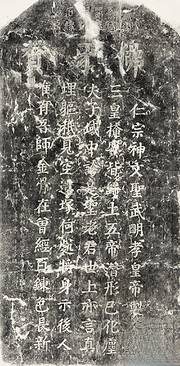 佛牙讚
仁宗神文聖武明孝皇帝製
三皇掩質皆歸土五帝潛形已化塵
夫子域中誇是聖老君世上亦言真
埋軀秖見空遺塚何處將身示後人
惟有吾師金骨在曾經百鍊色長新